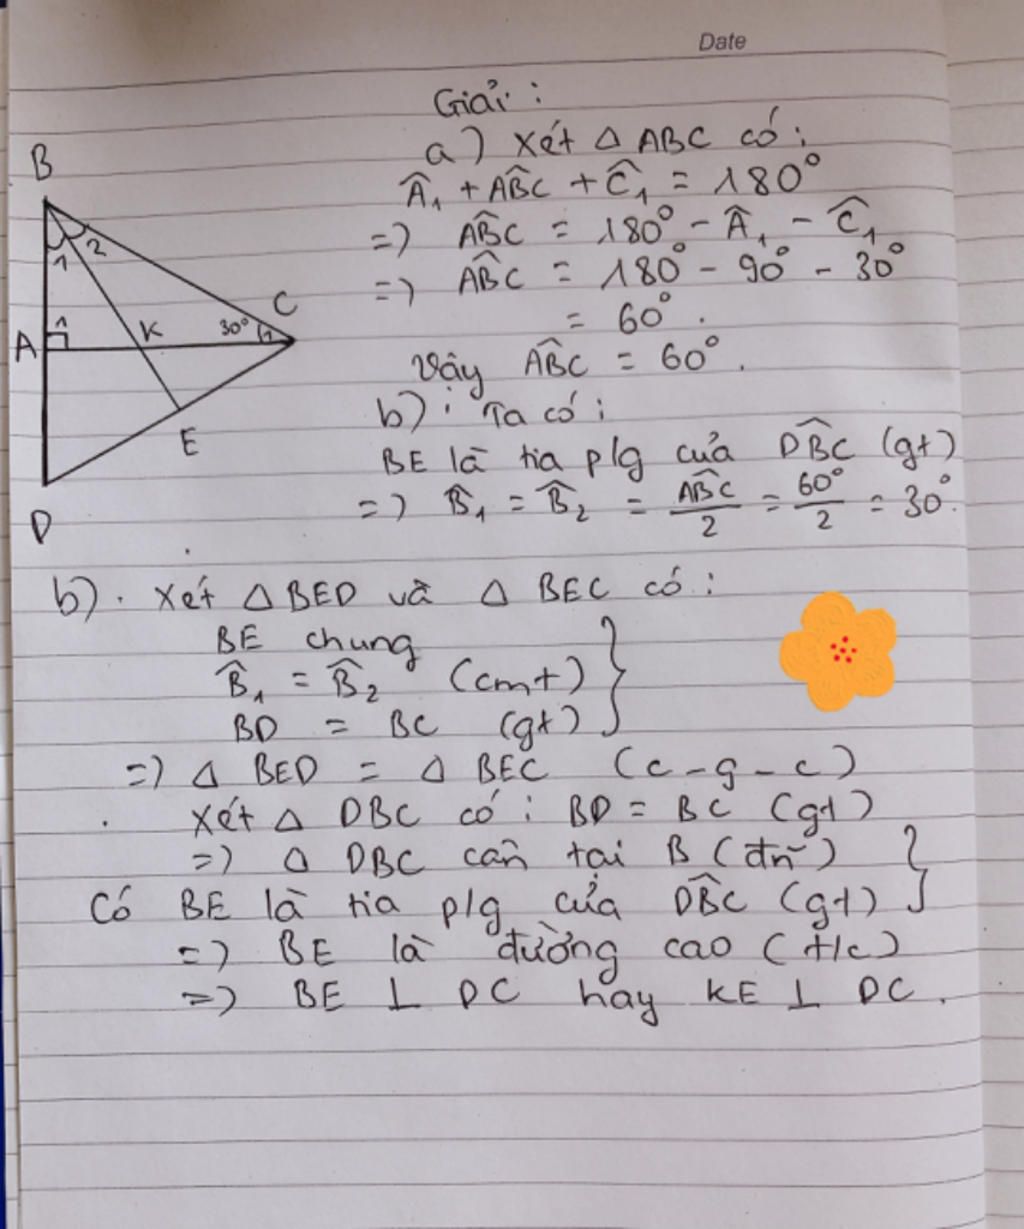 Date
Giải :
a) Xét Δ ABC có :
Â₁ + AB̂C + Ĉ₁ = 180°
=) AB̂C = 180° - Â₁ - Ĉ₁
=) AB̂C = 180° - 90° - 30°
= 60° .
Vậy AB̂C = 60° .
b) : Ta có :
BE là tia p/g của DB̂C (gt)
=) B̂₁ = B̂₂ = AB̂C/2 = 60°/2 = 30°.
B
1 2
C
A 1 K 30° 1
E
D
b) . Xét Δ BED và Δ BEC có :
BE chung
B̂₁ = B̂₂ (cmt)
BD = BC (gt) }
=) Δ BED = Δ BEC (c - g - c)
. Xét Δ DBC có : BD = BC (gt)
=) Δ DBC cân tại B (đn) }
Có BE là tia p/g của DB̂C (gt)
=) BE là đường cao (t/c)
=) BE ⊥ DC hay KE ⊥ DC .